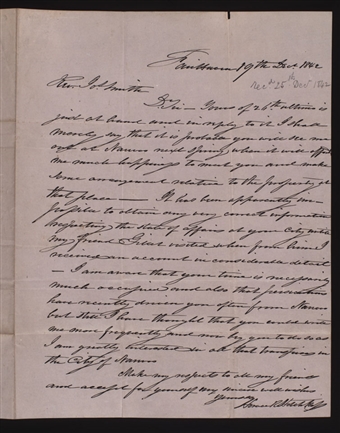 Fairhaven 19th Dec 1842
Recd 25th Decr 1842
Rev. Jos Smith
D Sir — Yours of 26th ultimo is
just at hand and in reply to it I shall
merely say that it is probable you will see me
at Nauvoo next Spring, when it will afford
me much happiness to meet you and make
some arrangement relative to the property at
that place — It has been apparently im-
possible to obtain any very correct information
respecting the state of affairs at your City until
my friend visited when from him I
received an account in considerable detail
— I am aware that your time is necessarily
much occupied and also that persecutions
have recently driven you often from Nauvoo
but still I have thought that you could write
me more frequently and now beg you to do so as
I am greatly interested in all that transpires in
the City of Nauvoo
Make my respects to all my friends
and accept for yourself my sincere well wishes
Yours